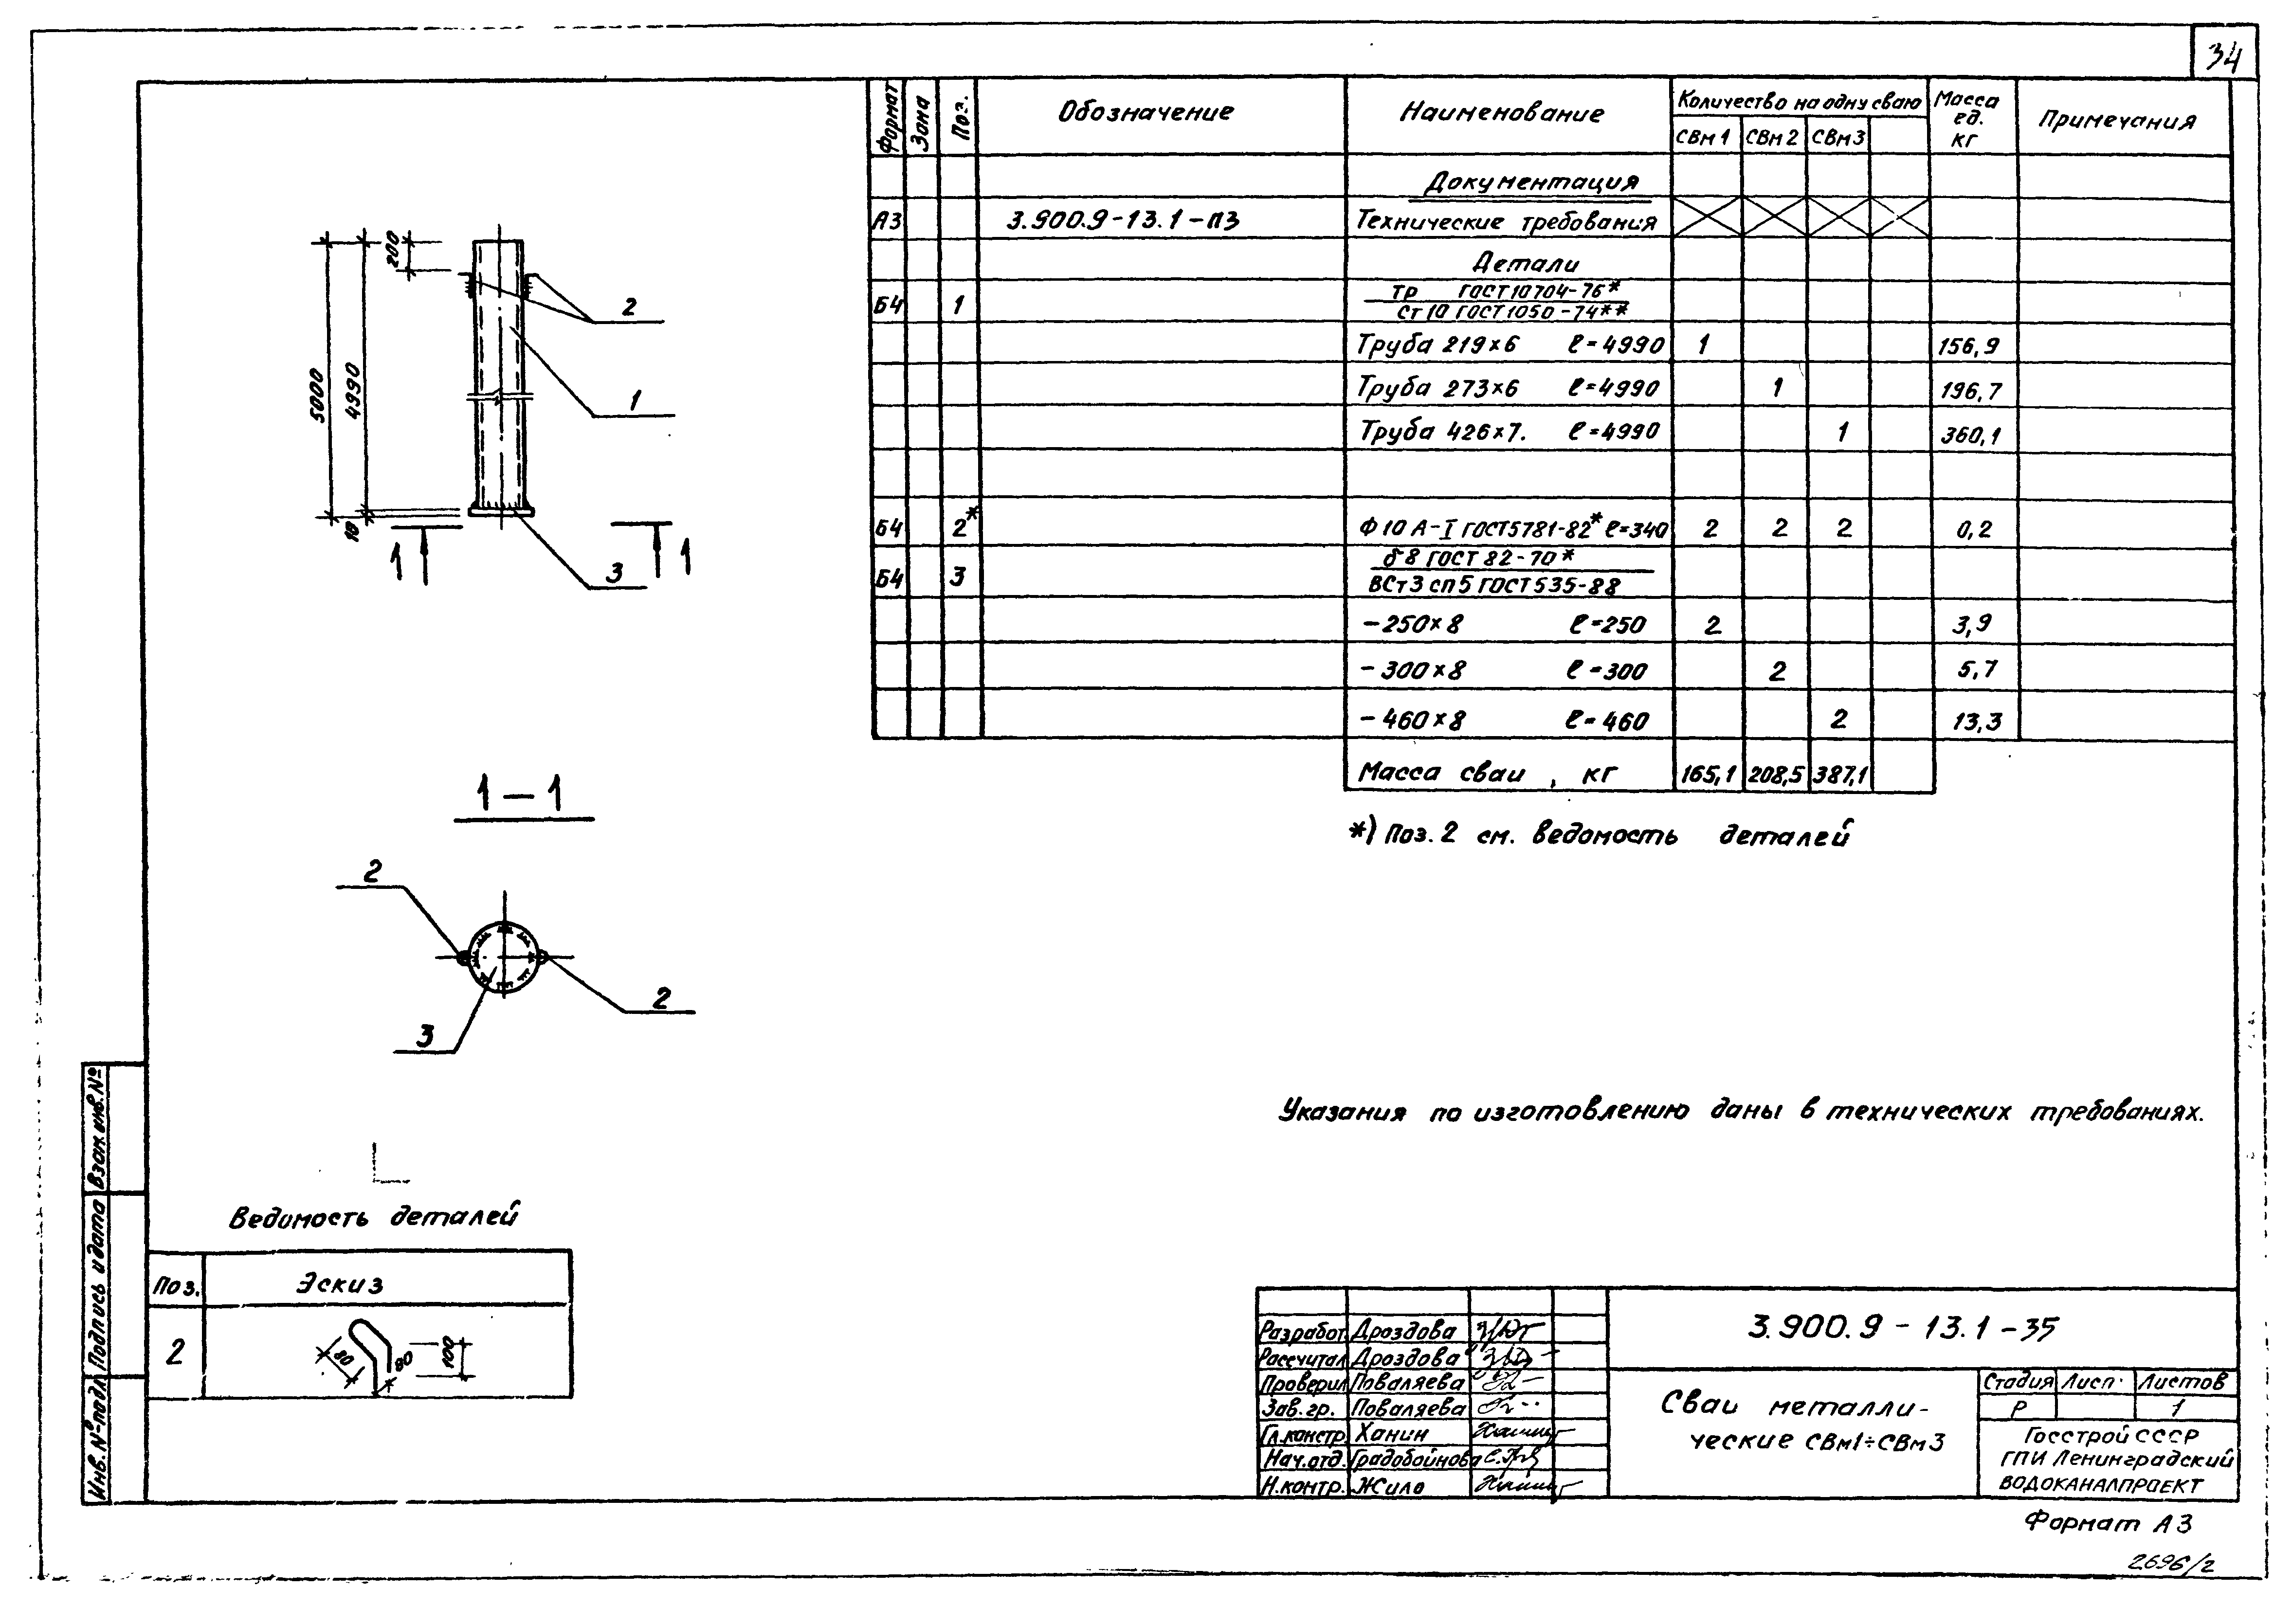 34
Формат Зона Поз. Обозначение Наименование Количество на одну сваю Масса ед. кг Примечания
СВм1 СВм2 СВм3
Документация
А3 3.900.9-13.1-ПЗ Технические требования
Детали
Б4 1 Тр ГОСТ 10704-76*
Ст 10 ГОСТ 1050-74**
Труба 219×6 ℓ=4990 1 156,9
Труба 273×6 ℓ=4990 1 196,7
Труба 426×7. ℓ=4990 1 360,1
Б4 2* Ф10 А-I ГОСТ5781-82* ℓ=340 2 2 2 0,2
Б4 3 δ8 ГОСТ 82-70*
ВСт3 сп5 ГОСТ535-88
-250×8 ℓ=250 2 3,9
-300×8 ℓ=300 2 5,7
-460×8 ℓ=460 2 13,3
Масса сваи, кг 165,1 208,5 387,1
*) Поз. 2 см. ведомость деталей
200
5000
4990
10
2
1
3
1 1
1-1
2
2
3
Указания по изготовлению даны в технических требованиях.
Ведомость деталей
Поз. Эскиз
2 80 80 100
Взам.инв.№
Подпись и дата
Инв.№подл
Разработ. Дроздова
Рассчитал Дроздова
Проверил Поваляева
Зав.гр. Поваляева
Гл.констр. Ханин
Нач.отд. Градобойнова
Н.контр. Жило
3.900.9-13.1-35
Сваи металли-
ческие СВм1÷СВм3
Стадия Лист Листов
Р 1
Госстрой СССР
ГПИ Ленинградский
ВОДОКАНАЛПРОЕКТ
Формат А3
2696/2